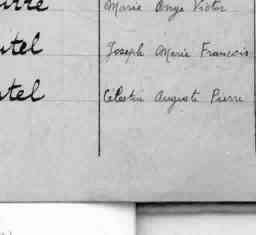 Marie Ange Victor
utel Joseph Marie Francois
utel Célestin Auguste Pierre